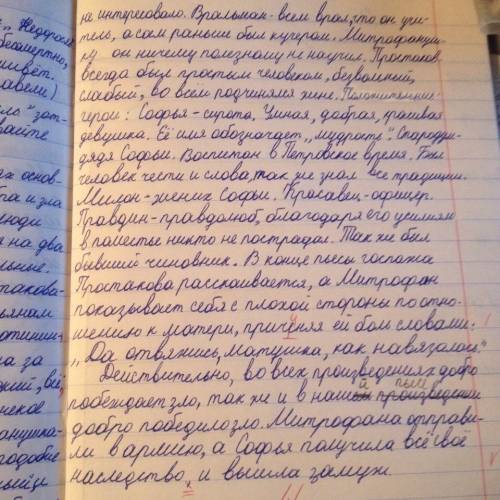 „Недоросл
не интересовало. Вральман - всем врал, что он учи-
тель, а сам раньше был кучером. Митрофануш-
ку он ничему полезному не научил. Простаков
всегда был простым человеком, безвольный,
слабый, во всем подчинялся жене. Положительные
герои: Софья - сирота. Умная, добрая, красивая
девушка. Её имя обозначает „мудрость". Стародум-
дядя Софьи. Воспитан в Петровское время. Был
человек чести и слова, так же знал все традиции.
Милон - жених Софьи. Красавец - офицер.
Правдин - правдолюб, благодаря его усилиям
в поместье никто не пострадал. Так же был
бывший чиновник. В конце пьесы госпожа
Простакова раскаивается, а Митрофан
показывает себя с плохой стороны по отно-
шению к матери, причиняя ей боль словами:
„Да отвяжись, матушка, как навязалась."
Действительно, во всех произведениях добро
побеждает зло, так же и в нашей пьесе произведении
добро победило зло. Митрофана отправи-
ли в армию, а Софья получила всё своё
наследство, и вышла замуж.